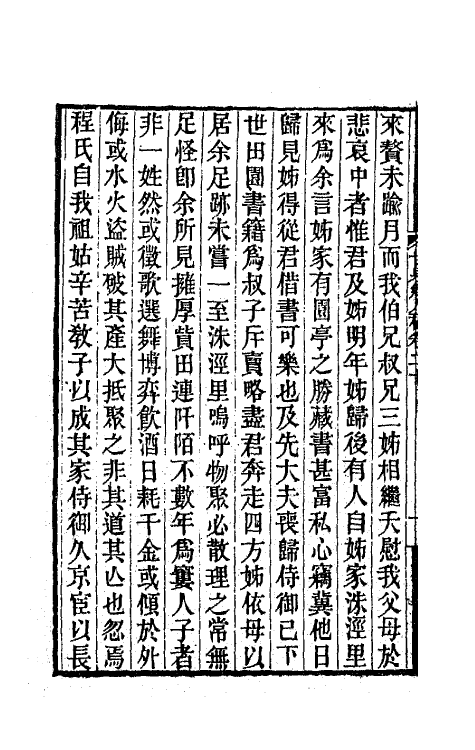 來贅未踰月而我伯兄叔兄三姊相繼夭慰我父母於
悲哀中者惟君及姊明年姊歸後有人自姊家洙涇里
來爲余言姊家有園亭之勝藏書甚富私心竊冀他日
歸見姊得從君借書可樂也及先大夫喪歸侍御已下
世田園書籍爲叔子斥賣略盡君奔走四方姊依母以
居余足跡未嘗一至洙涇里嗚呼物聚必散理之常無
足怪卽余所見擁厚貲田連阡陌不數年爲窶人子者
非一姓然或徵歌選舞博弈飮酒日耗千金或傾於外
侮或水火盜賊破其產大抵聚之非其道其亾也忽焉
程氏自我祖姑辛苦敎子以成其家侍御久京宦以長